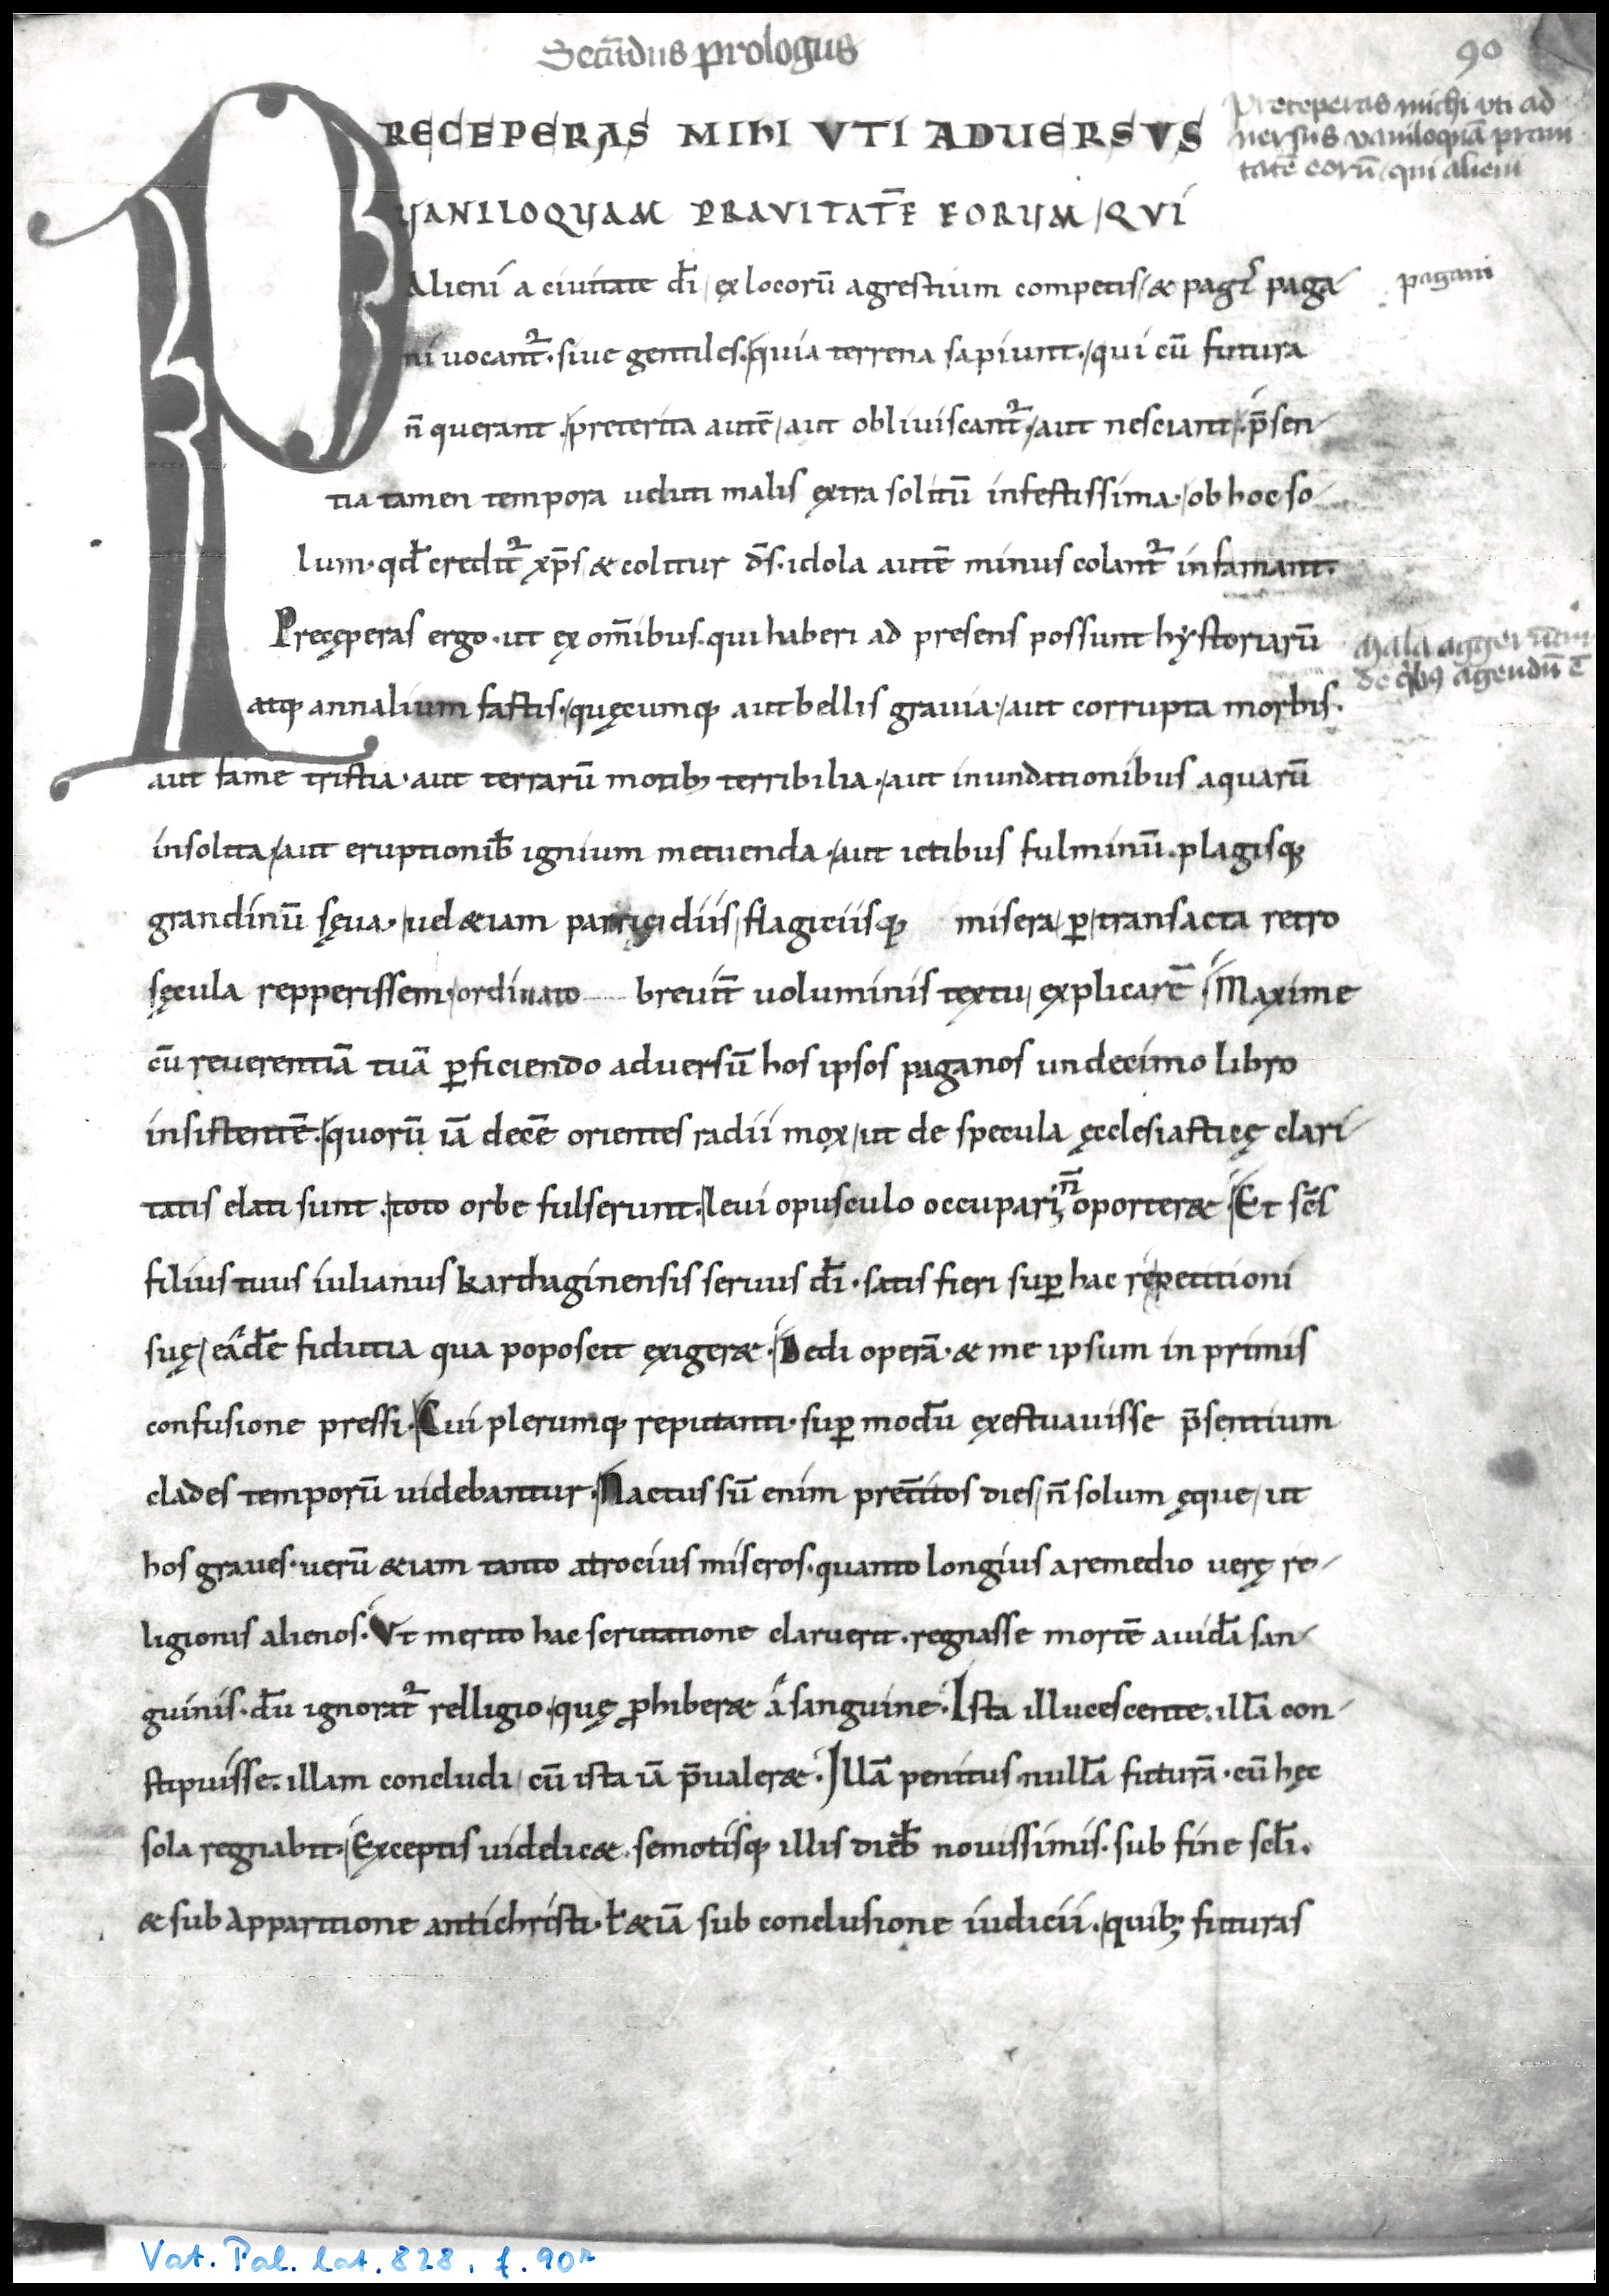 Secūdus prologus
90
PRECEPERAS MIhI VTI ADUERSVS
Preceperas michi vti ad
uersus vaniloquā praui
tatē eorū / qui alieni
VANILOQUAM PRAVITATĒ EORUM / QVI
Alieni a ciuitate dī / ex locorū agrestium competis / & pagꝭ paga
pagani
ni uocant᷑ · siue gentiles · quia terrena sapiunt · / qui cū futura
n̄ querant · / preterita autē / aut obliuiscant᷑ · / aut nesciant / · p̄sen
tia tamen tempora ueluti malis extra solitū infestissima · / ob hoc so
lum · qđ credit᷑ xp̄s & colitur d̄s · idola autē minus colant᷑ infamant ·
Preceperas ergo · ut ex om̄ibus · qui haberi ad presens possunt hẏstoriarū
mala agger
de qͥbꝰ agendū ē
atqꝫ annalium fastis · / quęcumqꝫ aut bellis grauia · / aut corrupta morbis ·
aut fame tristia · aut terrarū motibꝫ terribilia · / aut inundationibus aquarū
insolita / aut eruptionib̄ ignium metuenda · / aut ictibus fulminū · plagisqꝫ
grandinū sęua · / uel &iam parricidiis / flagitiisqꝫ misera / ꝑ / transacta retro
sęcula repperissem · / ordinato breuit̄ uoluminis textu / explicarē · / Maxime
cū reuerentiā tuā ꝑficiendo aduersū hos ipsos paganos undecimo libro
insistentē · / quorū iā decē orientes radii mox / ut de specula ęcclesiasticę clari
tatis elati sunt · / toto orbe fulserunt · / leui opusculo occupari n̄ oporter& · / Et sc̄s
filius tuus iulianus karthaginensis seruus dī · satis fieri suꝑ hac repetitioni
suę / eādē fidutia qua poposcit exiger& · / Dedi operā · & me ipsum in primis
confusione pressi · / Cui plerumqꝫ reputanti · suꝑ modū exęstuauisse p̄sentium
clades temporū uidebantur · / Nactus sū enim pret̄itos dies / n̄ solum ęque / ut
hos graues · uerū &iam tanto atrocius miseros · quanto longius a remedio uerę re
ligionis alienos · Vt merito hac scrutatione claruerit · regnasse mortē auidā san
guinis · dū ignorat᷑ relligio · / quę ꝓhiber& á sanguine · Ista illucescente · illā con
stipuisse · illam concludi / cū ista iā p̄ualer& · Illā penitus nullā futurā · cū hęc
sola regnabit · / Exceptis uidelic& · semotisqꝫ illis dieb̄ nouissimis · sub fine sc̄li ·
& sub apparitione antichristi · ł &iā sub conclusione iudicii · / quibꝫ futuras
Vat. Pal. lat. 828, f. 90r